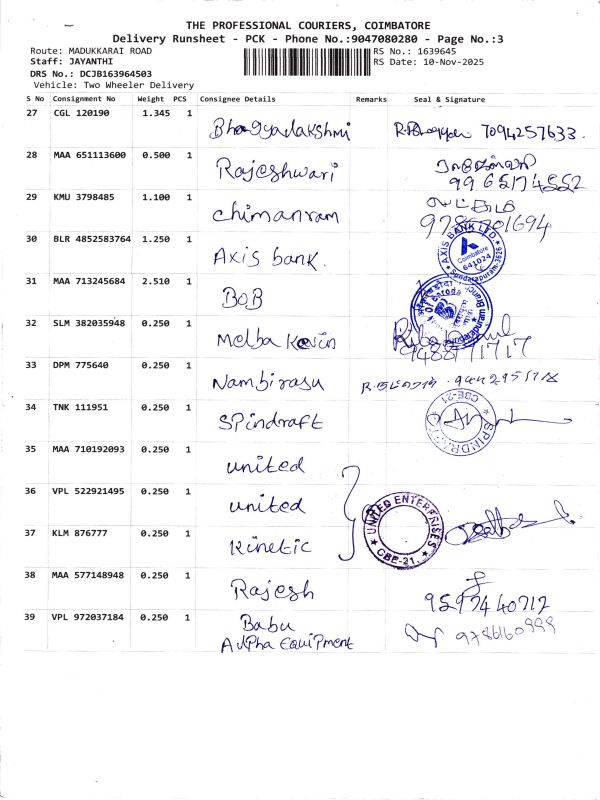 THE PROFESSIONAL COURIERS, COIMBATORE
Delivery Runsheet - PCK - Phone No.:9047080280 - Page No.:3
Route: MADUKKARAI ROAD
RS No.: 1639645
Staff: JAYANTHI
RS Date: 10-Nov-2025
DRS No.: DCJB163964503
Vehicle: Two Wheeler Delivery
S No Consignment No Weight PCS Consignee Details Remarks Seal & Signature
27 CGL 120190 1.345 1 Bhagyalakshmi 7094257633.
28 MAA 651113600 0.500 1 Rajeshwari
9965174552
29 KMU 3798485 1.100 1 Chimanram
30 BLR 4852583764 1.250 1 Axis bank.
AXIS BANK LTD
Coimbatore
641024
Sundarapuram-3626
31 MAA 713245684 2.510 1 BOB
32 SLM 382035948 0.250 1 Melba Kevin
9488771717
33 DPM 775640 0.250 1 Nambirasu
34 TNK 111951 0.250 1 Spindraft
SPINDRAFT CBE-21
35 MAA 710192093 0.250 1 united
36 VPL 522921495 0.250 1 united
UNITED ENTERPRISES
CBE-21.
37 KLM 876777 0.250 1 Kinetic
38 MAA 577148948 0.250 1 Rajesh
9597440717
39 VPL 972037184 0.250 1 Babu
9786160999
Alpha Equipment